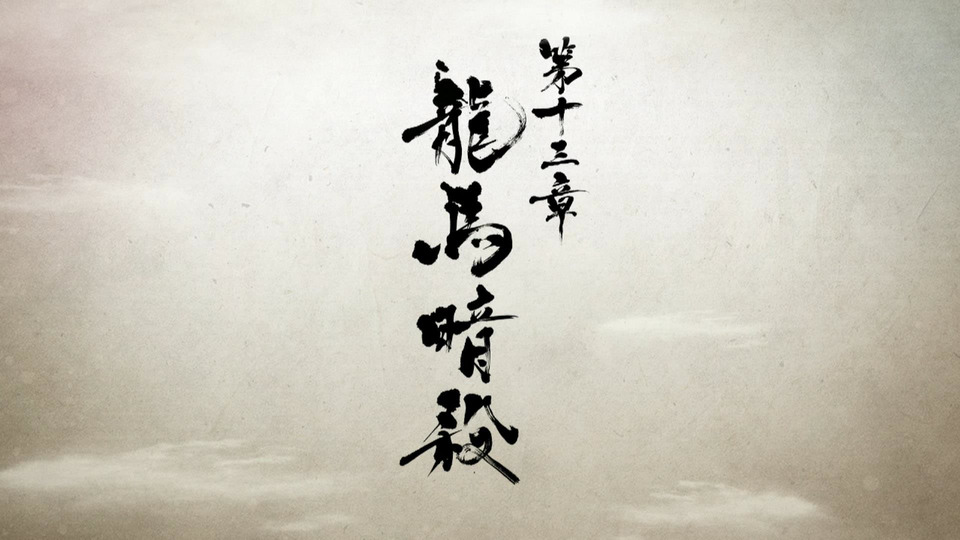 第十三章
龍馬暗殺